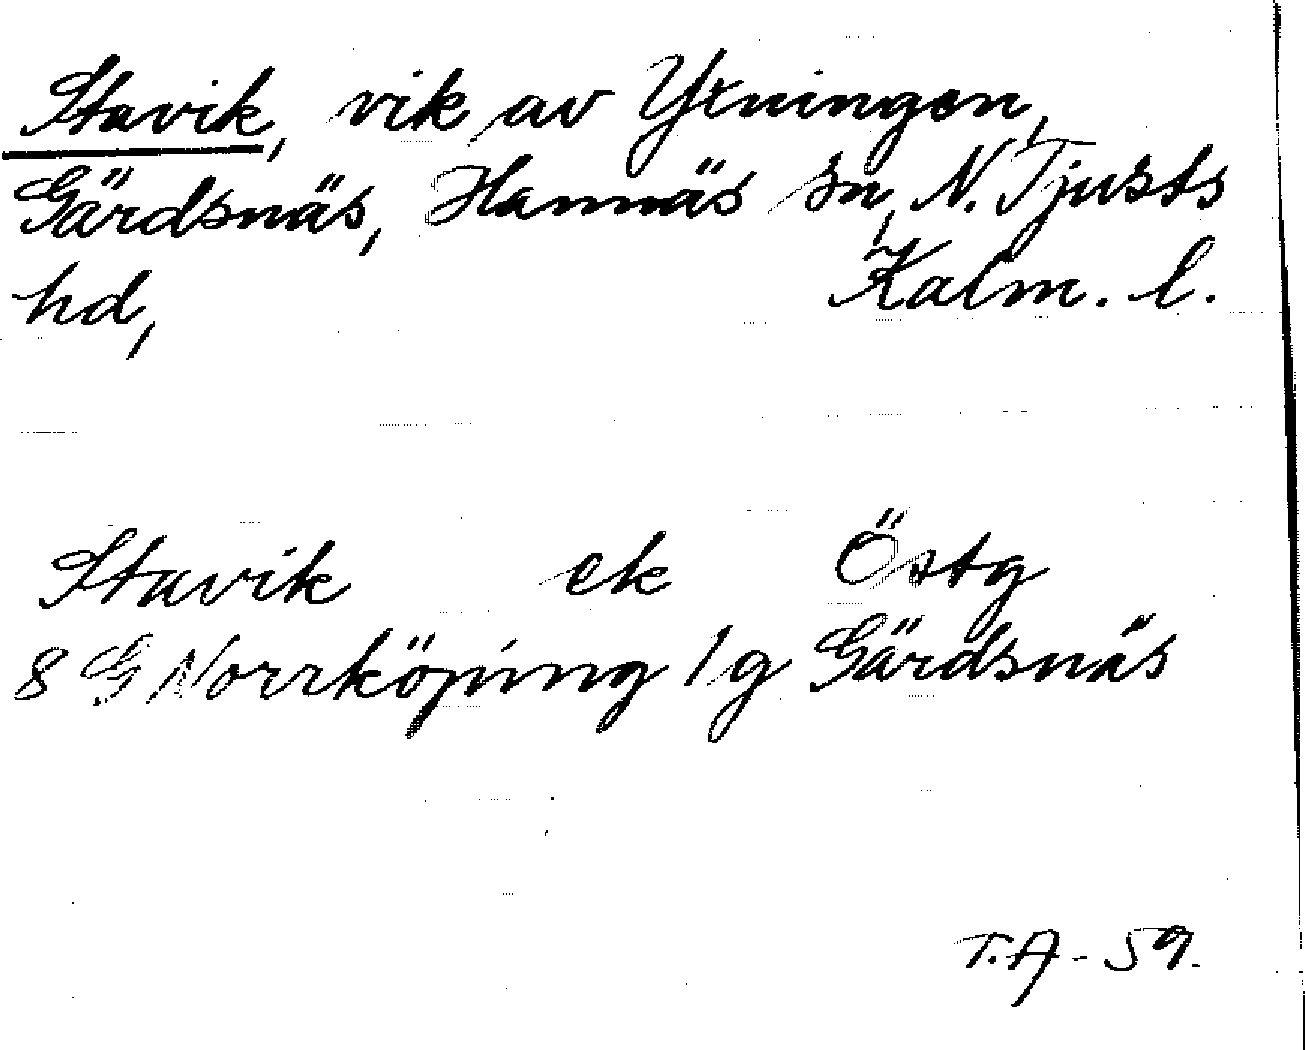 Stavik, vik av Yxningen,
Gärdsnäs, Hannäs sn, N. Tjusts
hd, Kalm. l.
Stavik ek Östg
8 G Norrköping 1 g Gärdsnäs
T.A - 59.